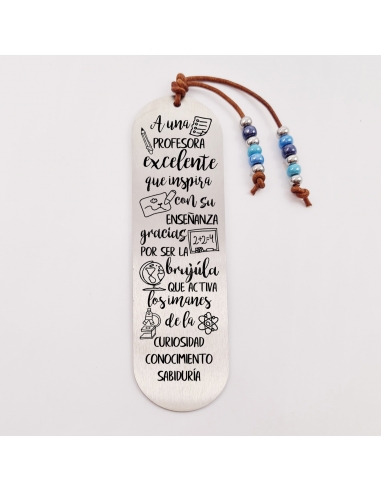 A una
PROFESORA
excelente
que inspira
con su
ENSEÑANZA
gracias
2+2=4
POR SER LA
brujúla
QUE ACTIVA
los imanes
de la
CURIOSIDAD
CONOCIMIENTO
SABIDURÍA